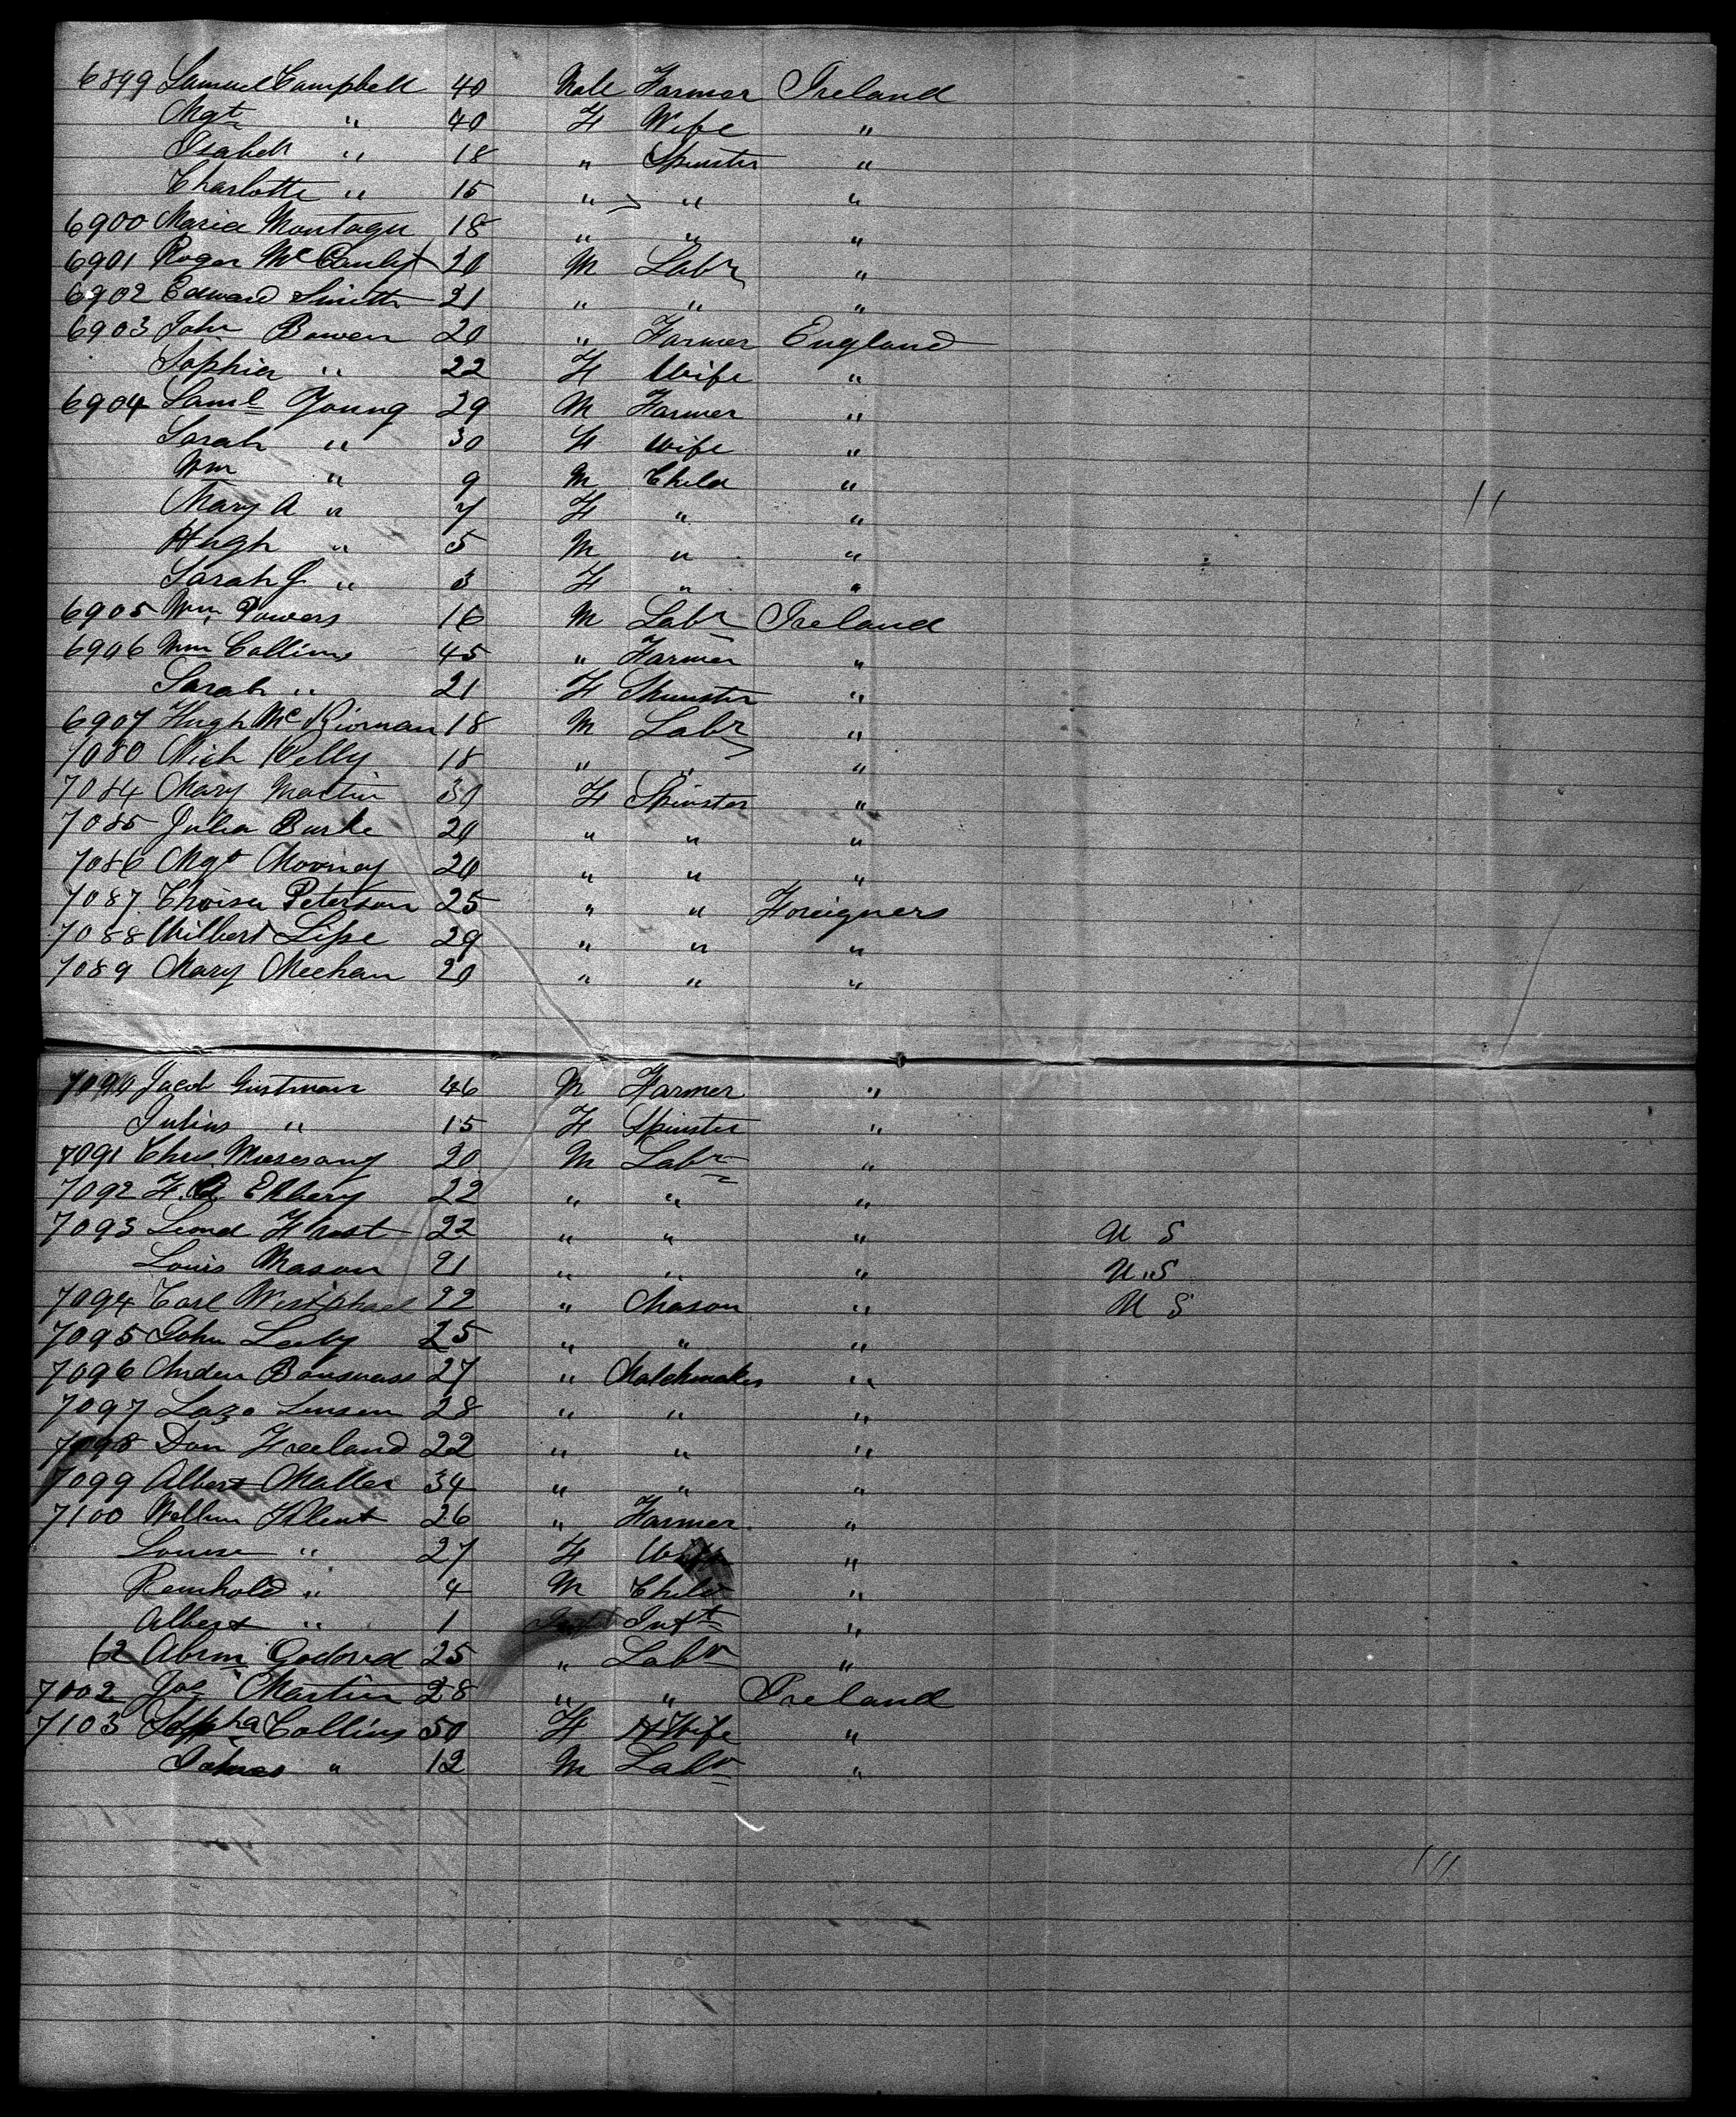 6899 Samuel Campbell 40 Male Farmer Ireland
Mgt " 40 F Wife "
Isabell " 18 " Spinster "
Charlotte " 15 " " "
6900 Maria Montague 18 " " "
6901 Roger McCauly 20 M Labr "
6902 Edward Smith 21 " " "
6903 John Bowen 20 " Farmer England
Sophia " 22 F Wife "
6904 Saml Young 29 M Farmer "
Sarah " 30 F Wife "
Wm " 9 M Child "
Mary A " 7 F " "
Hugh " 5 M " "
Sarah J " 3 F " "
6905 Wm Powers 16 M Labr Ireland
6906 Wm Collins 45 " Farmer "
Sarah " 21 F Spinster "
6907 Hugh McKiernan 18 M Labr "
7080 Mich Kelly 18 " " "
7084 Mary Martin 30 F Spinster "
7085 Julia Burke 20 " " "
7086 Mgt Mooney 20 " " "
7087 Peterson 25 " " Foreigners
7088 Wilbert Lipe 29 " " "
7089 Mary Meehan 20 " " "
7090 Jacob Gustman 46 M Farmer "
Julius " 15 F Spinster "
7091 Chas 20 M Labr "
7092 Ekberg 22 " " "
7093 22 " " " U S
Louis Mason 21 " " " U S
7094 Carl Westphael 22 " Mason " U S
7095 John 25 " " "
7096 27 " Matchmaker "
7097 28 " " "
7098 Dan Freeland 22 " " "
7099 Albert Maller 34 " " "
7100 26 " Farmer "
Louise " 27 F Wife "
Reinhold " 4 M Child "
Albert " 1 Inft "
62 Abrm 25 " Labr "
7002 Jos Martin 28 " " Ireland
7103 Collins 50 F Wife "
James " 12 M Labr "